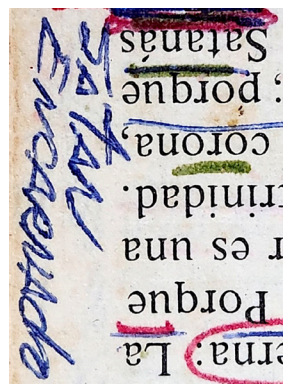 erna: La
Porque
r es una
trinidad.
corona,
; porque
Satanás
SATAN